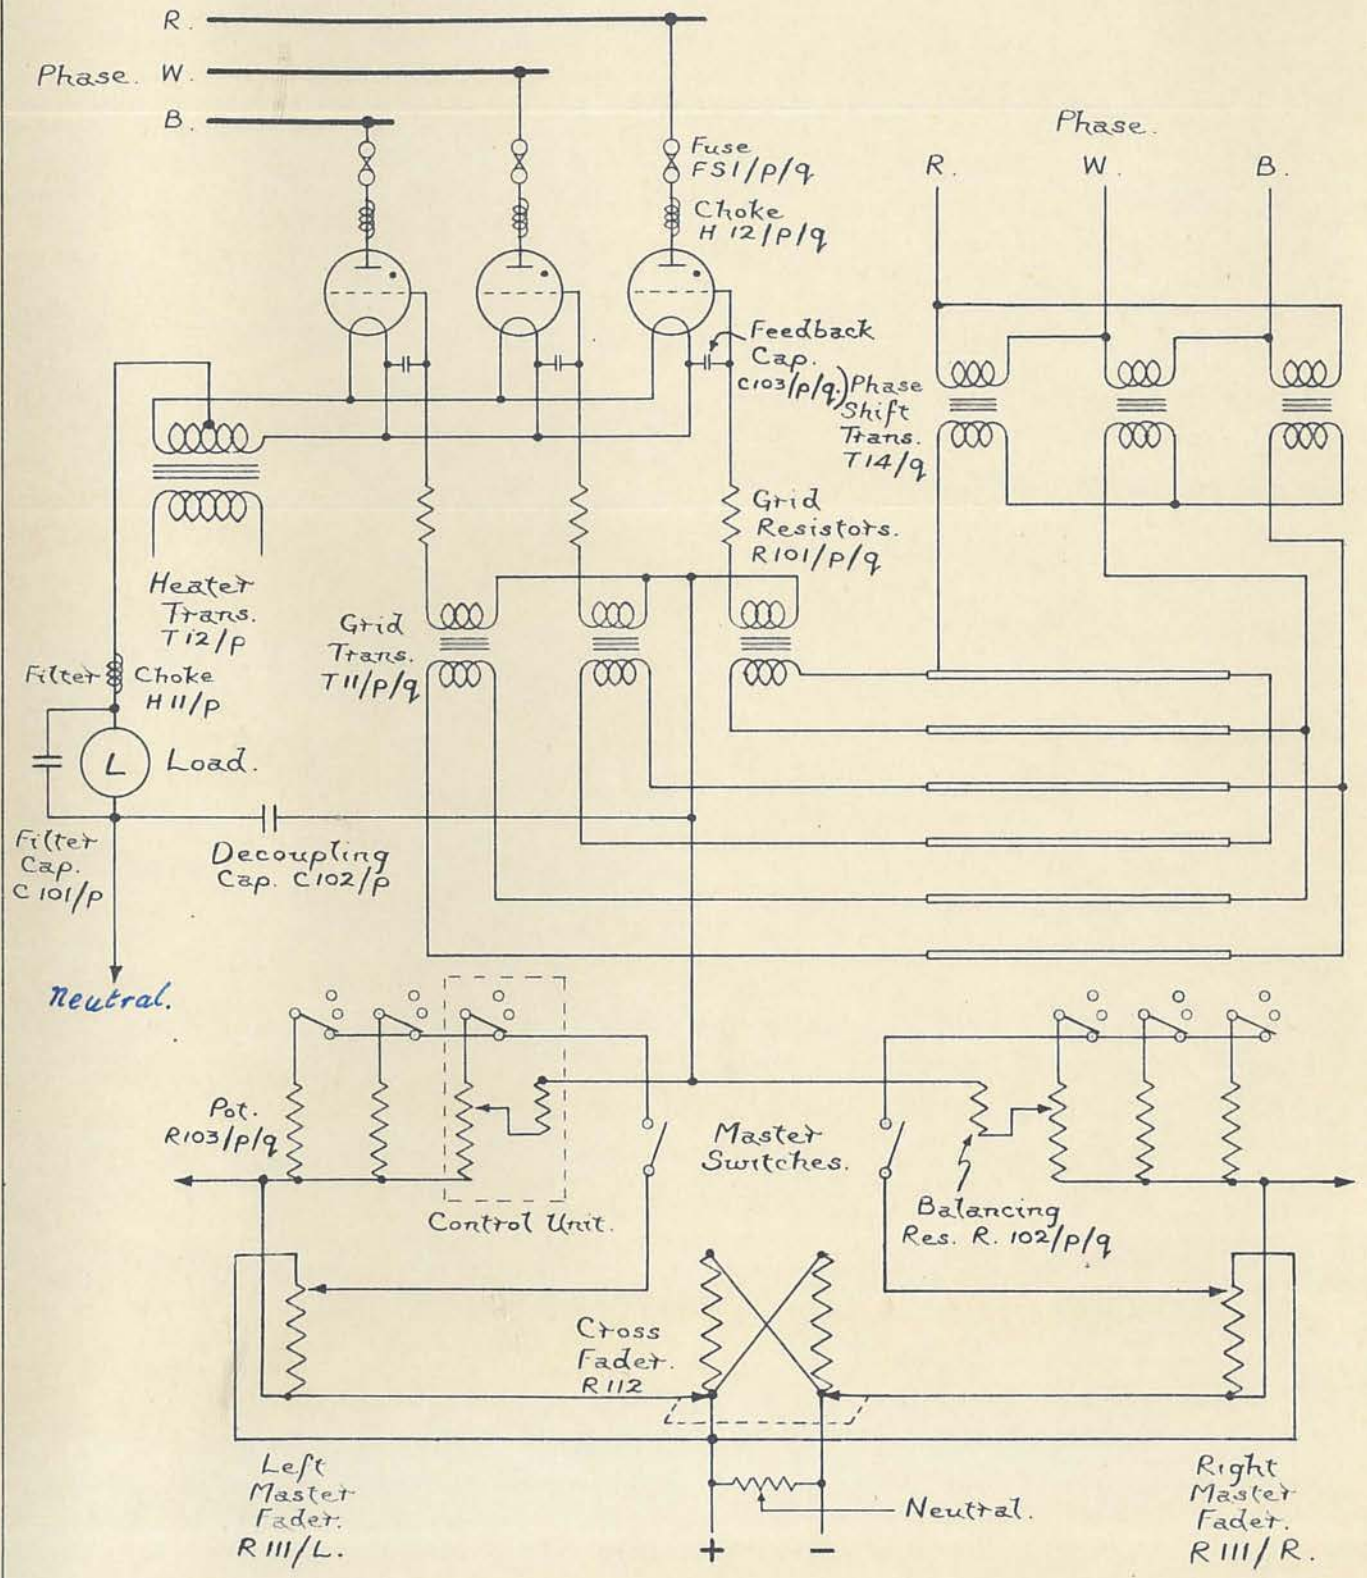 R.
Phase. W.
B.
Fuse
FS1/p/q
Choke
H 12/p/q
Phase.
R. W. B.
Feedback
Cap.
C103/p/q.)
Phase
Shift
Trans.
T14/q
Grid
Resistors.
R101/p/q
Heater
Trans.
T12/p
Grid
Trans.
T11/p/q
Filter Choke
H11/p
L Load.
Filter
Cap.
C101/p
Decoupling
Cap. C102/p
Neutral.
Pot.
R103/p/q
Control Unit.
Master
Switches.
Balancing
Res. R. 102/p/q
Cross
Fader.
R112
Left
Master
Fader.
R111/L.
Neutral.
+ −
Right
Master
Fader.
R111/R.